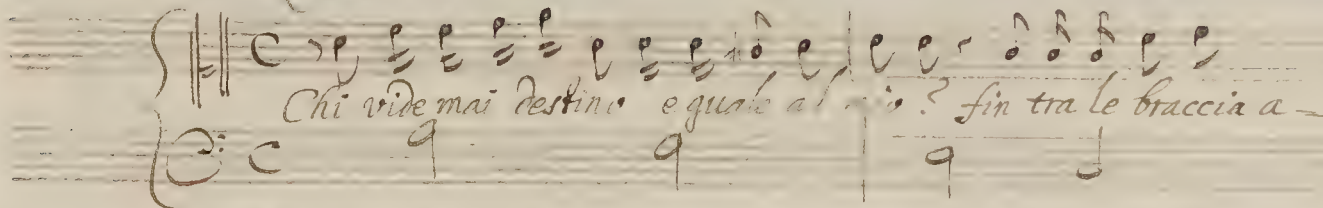 Chi vide mai destino eguale al mio? fin tra le braccia a-